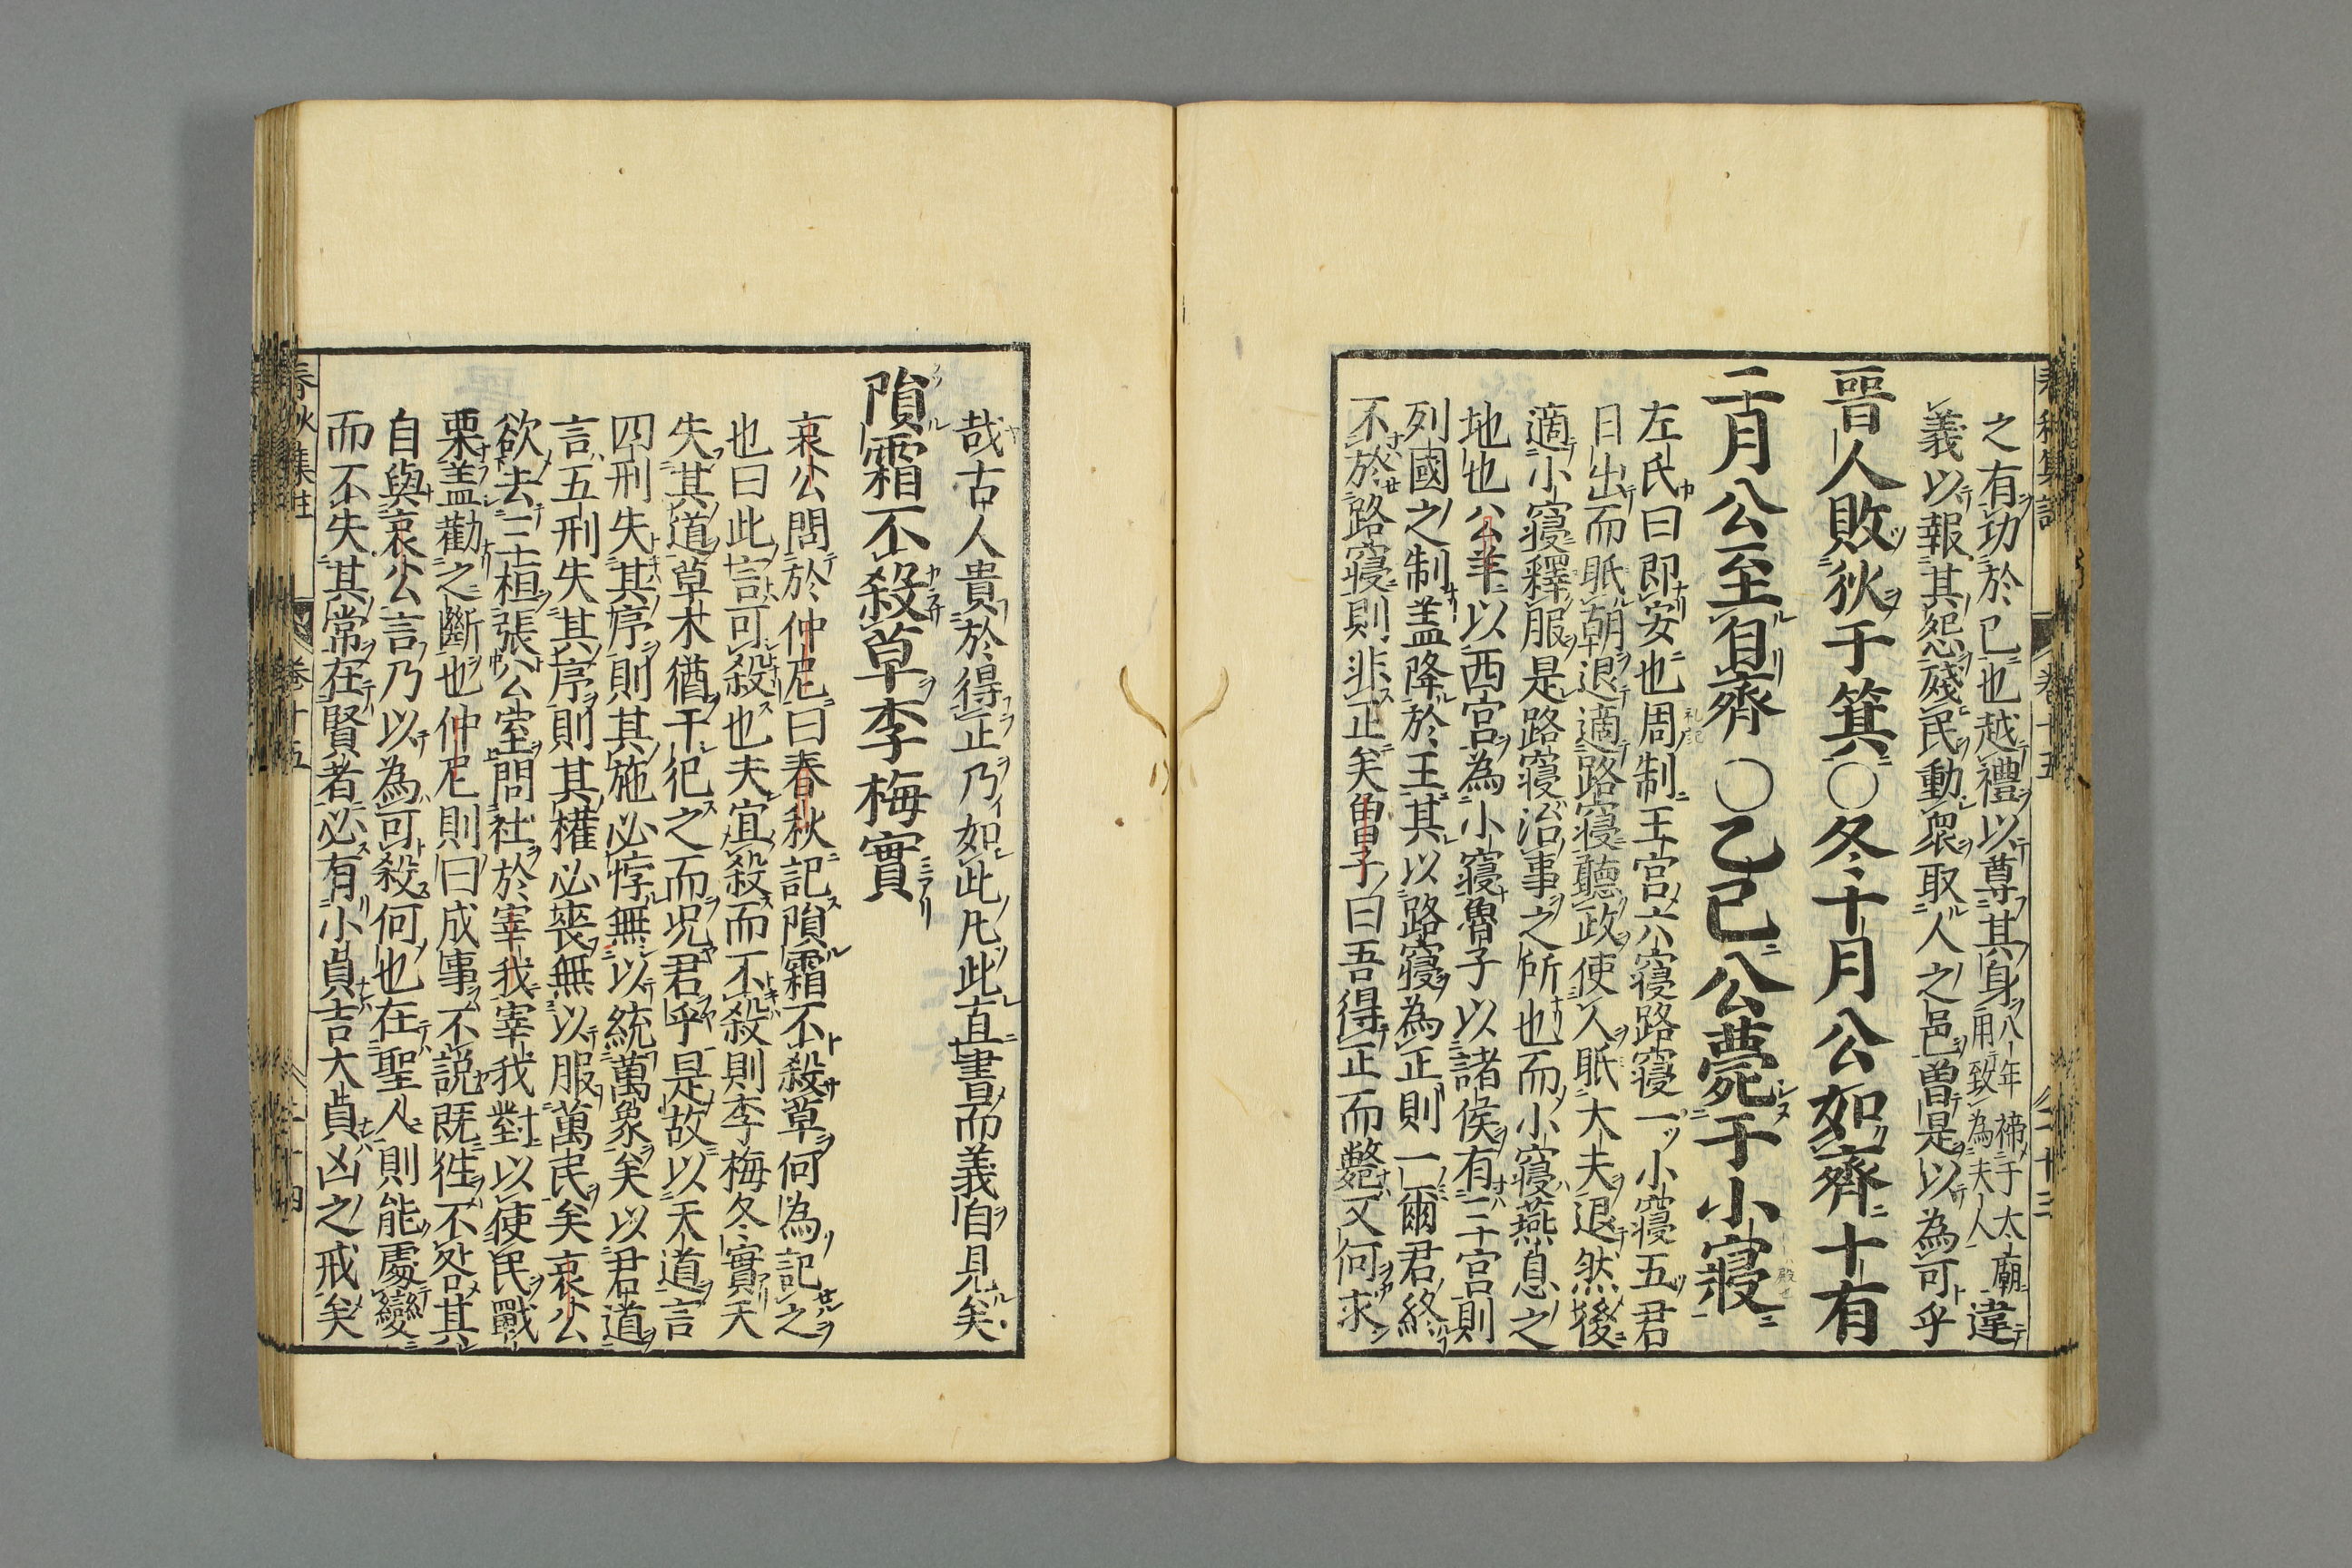 之有功於己也越禮以尊其身八年禘于太廟用致為夫人違
義以報其怨殘民動衆取人之邑曽是以為可乎
晉人敗狄于箕○冬十月公如齊十有
二月公至自齊○乙巳公薨于小寢
左氏曰即安也周制王宮六寢路寢一小寢五君
日出而眂朝退適路寢聽政使人眂大夫退然後
適小寢釋服是路寢治事之所也而小寢燕息之
地也公羊以西宮為小寢魯子以諸侯有三宮則
列國之制盖降於王其以路寢為正則一爾君終
不於路寢則非正矣曽子曰吾得正而斃又何求
哉古人貴於得正乃如此凡此直書而義自見矣
隕霜不殺草李梅實
哀公問於仲尼曰春秋記隕霜不殺草何為記之
也曰此言可殺也夫宜殺而不殺則李梅冬實天
失其道草木猶干犯之而况君乎是故以天道言
四刑失其序則其施必悖無以統萬象矣以君道
言五刑失其序則其權必喪無以服萬民矣哀公
欲去三桓張公室問社於宰我宰我對以使民戰
栗盖勸之斷也仲尼則曰成事不說既徃不咎其
自與哀公言乃以為可殺何也在聖人則能處變
而不失其常在賢者必有小貞吉大貞凶之戒矣
春秋集註 卷十五